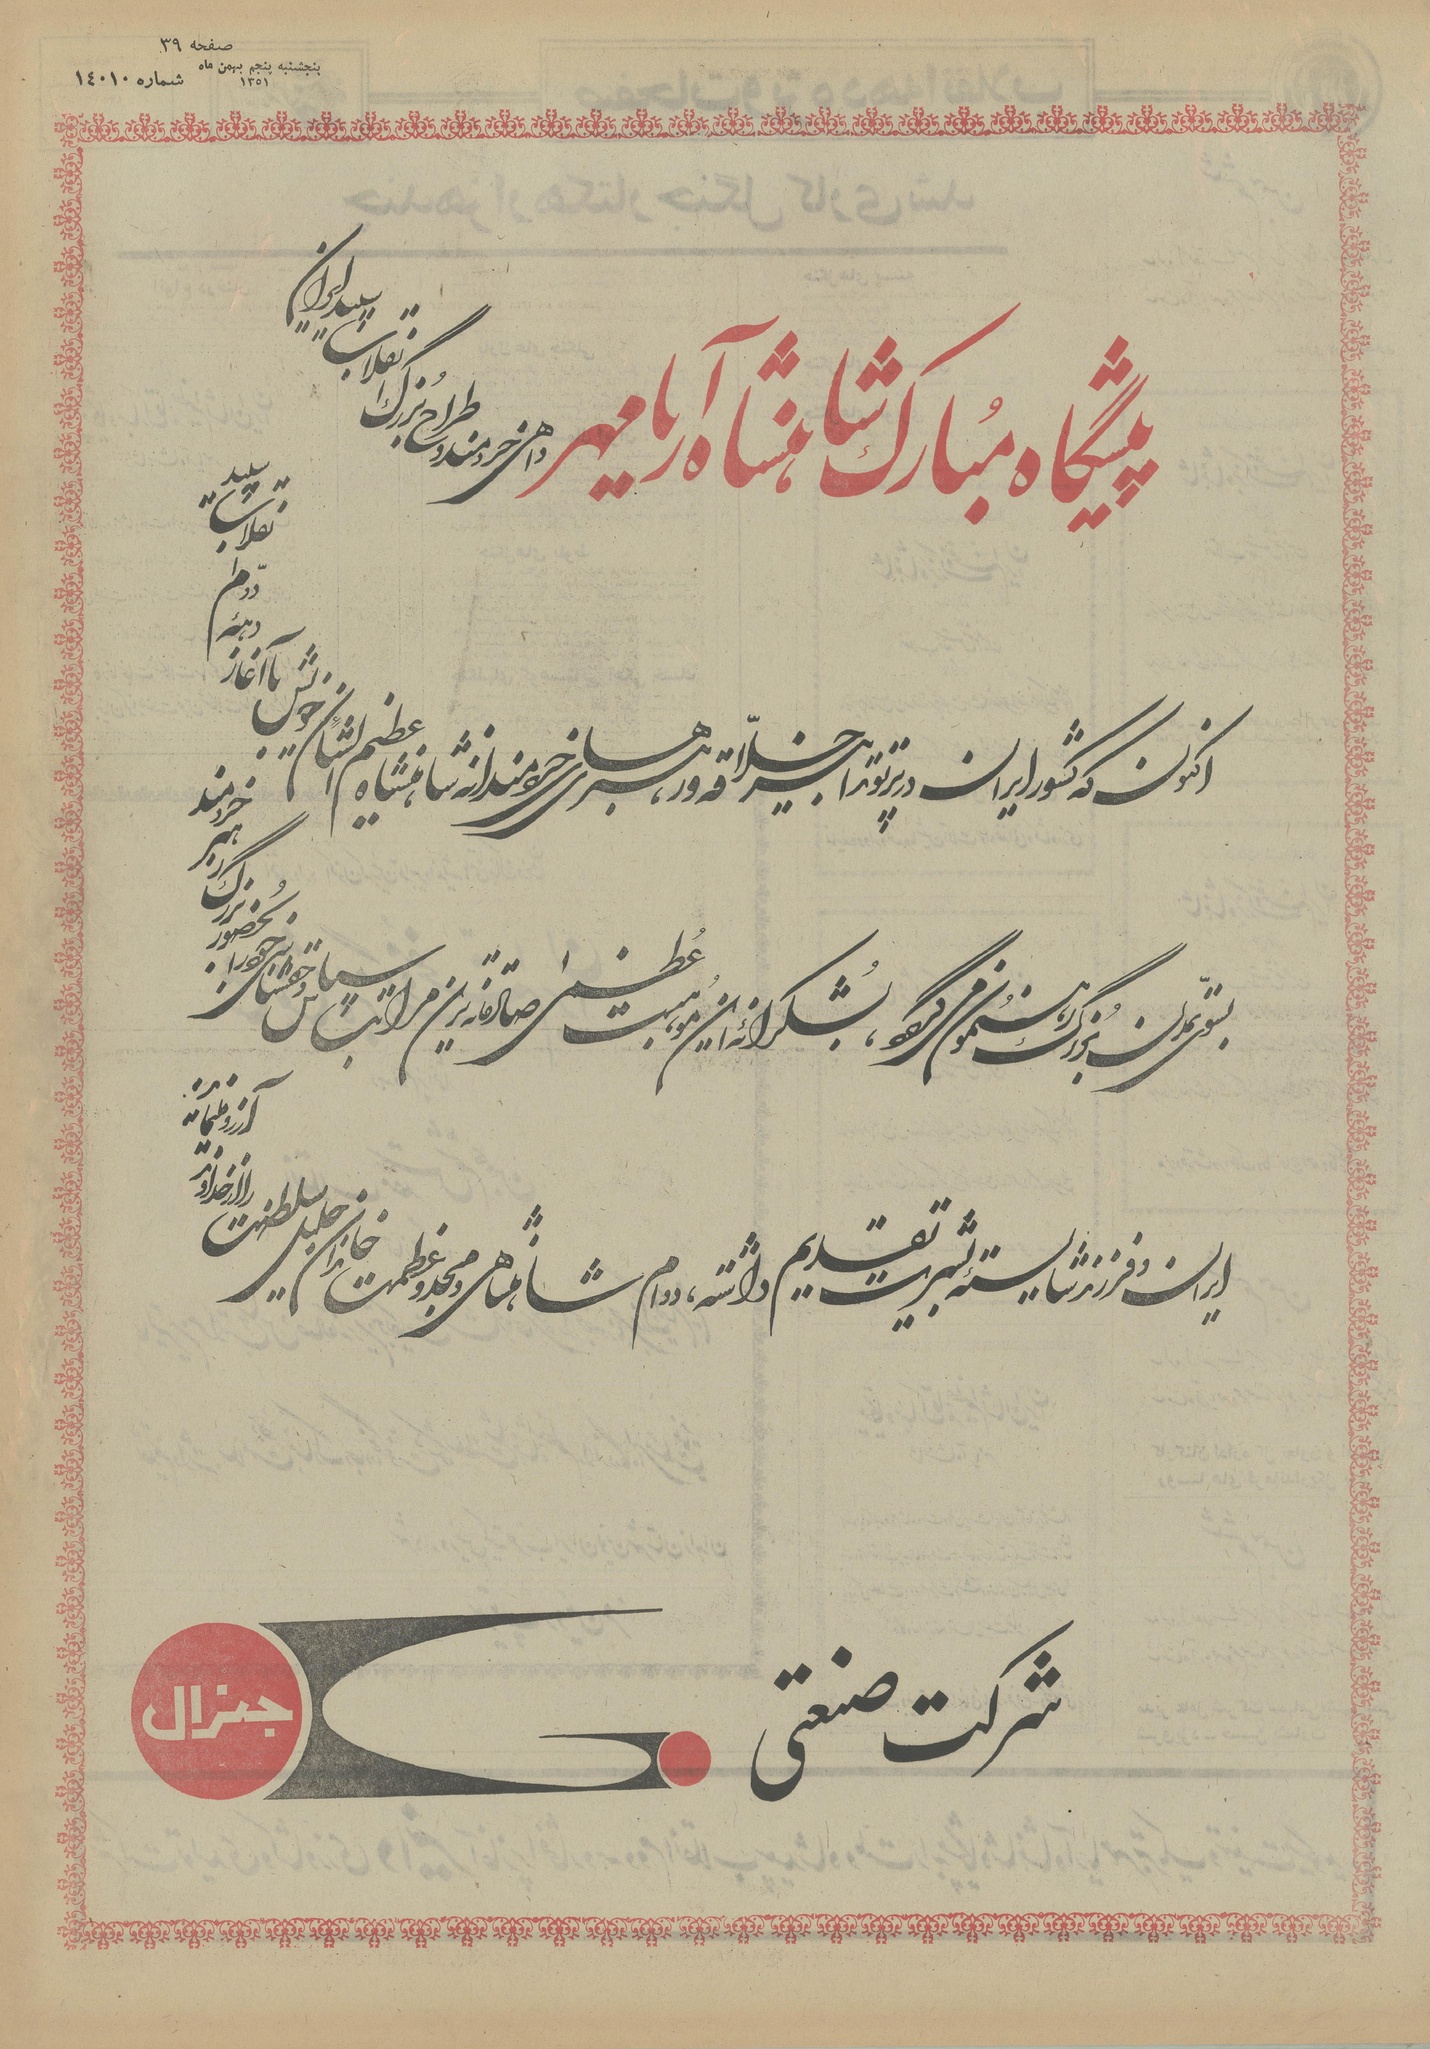 صفحه ۳۹
پنجشنبه پنجم بهمن ماه
۱۳۵۱
شماره ۱۴۰۱۰
پیشگاه مبارک شاهنشاه آریامهر
داهی خردمند و طراح بزرگ انقلاب سپید ایران
اکنون که کشور ایران در پرتو تدابیر خلاقه و رهبریهای خردمندانه شاهنشاه عظیم الشان خویش با آغاز دهه دوم انقلاب سپید
بسوی تمدن بزرگ رهنمون می گردد، بشکرانه این موهبت عظمی صادقانه ترین مراتب سپاس و حقشناسی خود را بحضور بزرگ رهبر خردمند
ایران و فرزند شایسته بشریت تقدیم داشته، دوام شاهنشاهی و مجد و عظمت خاندان جلیل سلطنت را از خداوند آرزو مینماید
شرکت صنعتی
جنرال